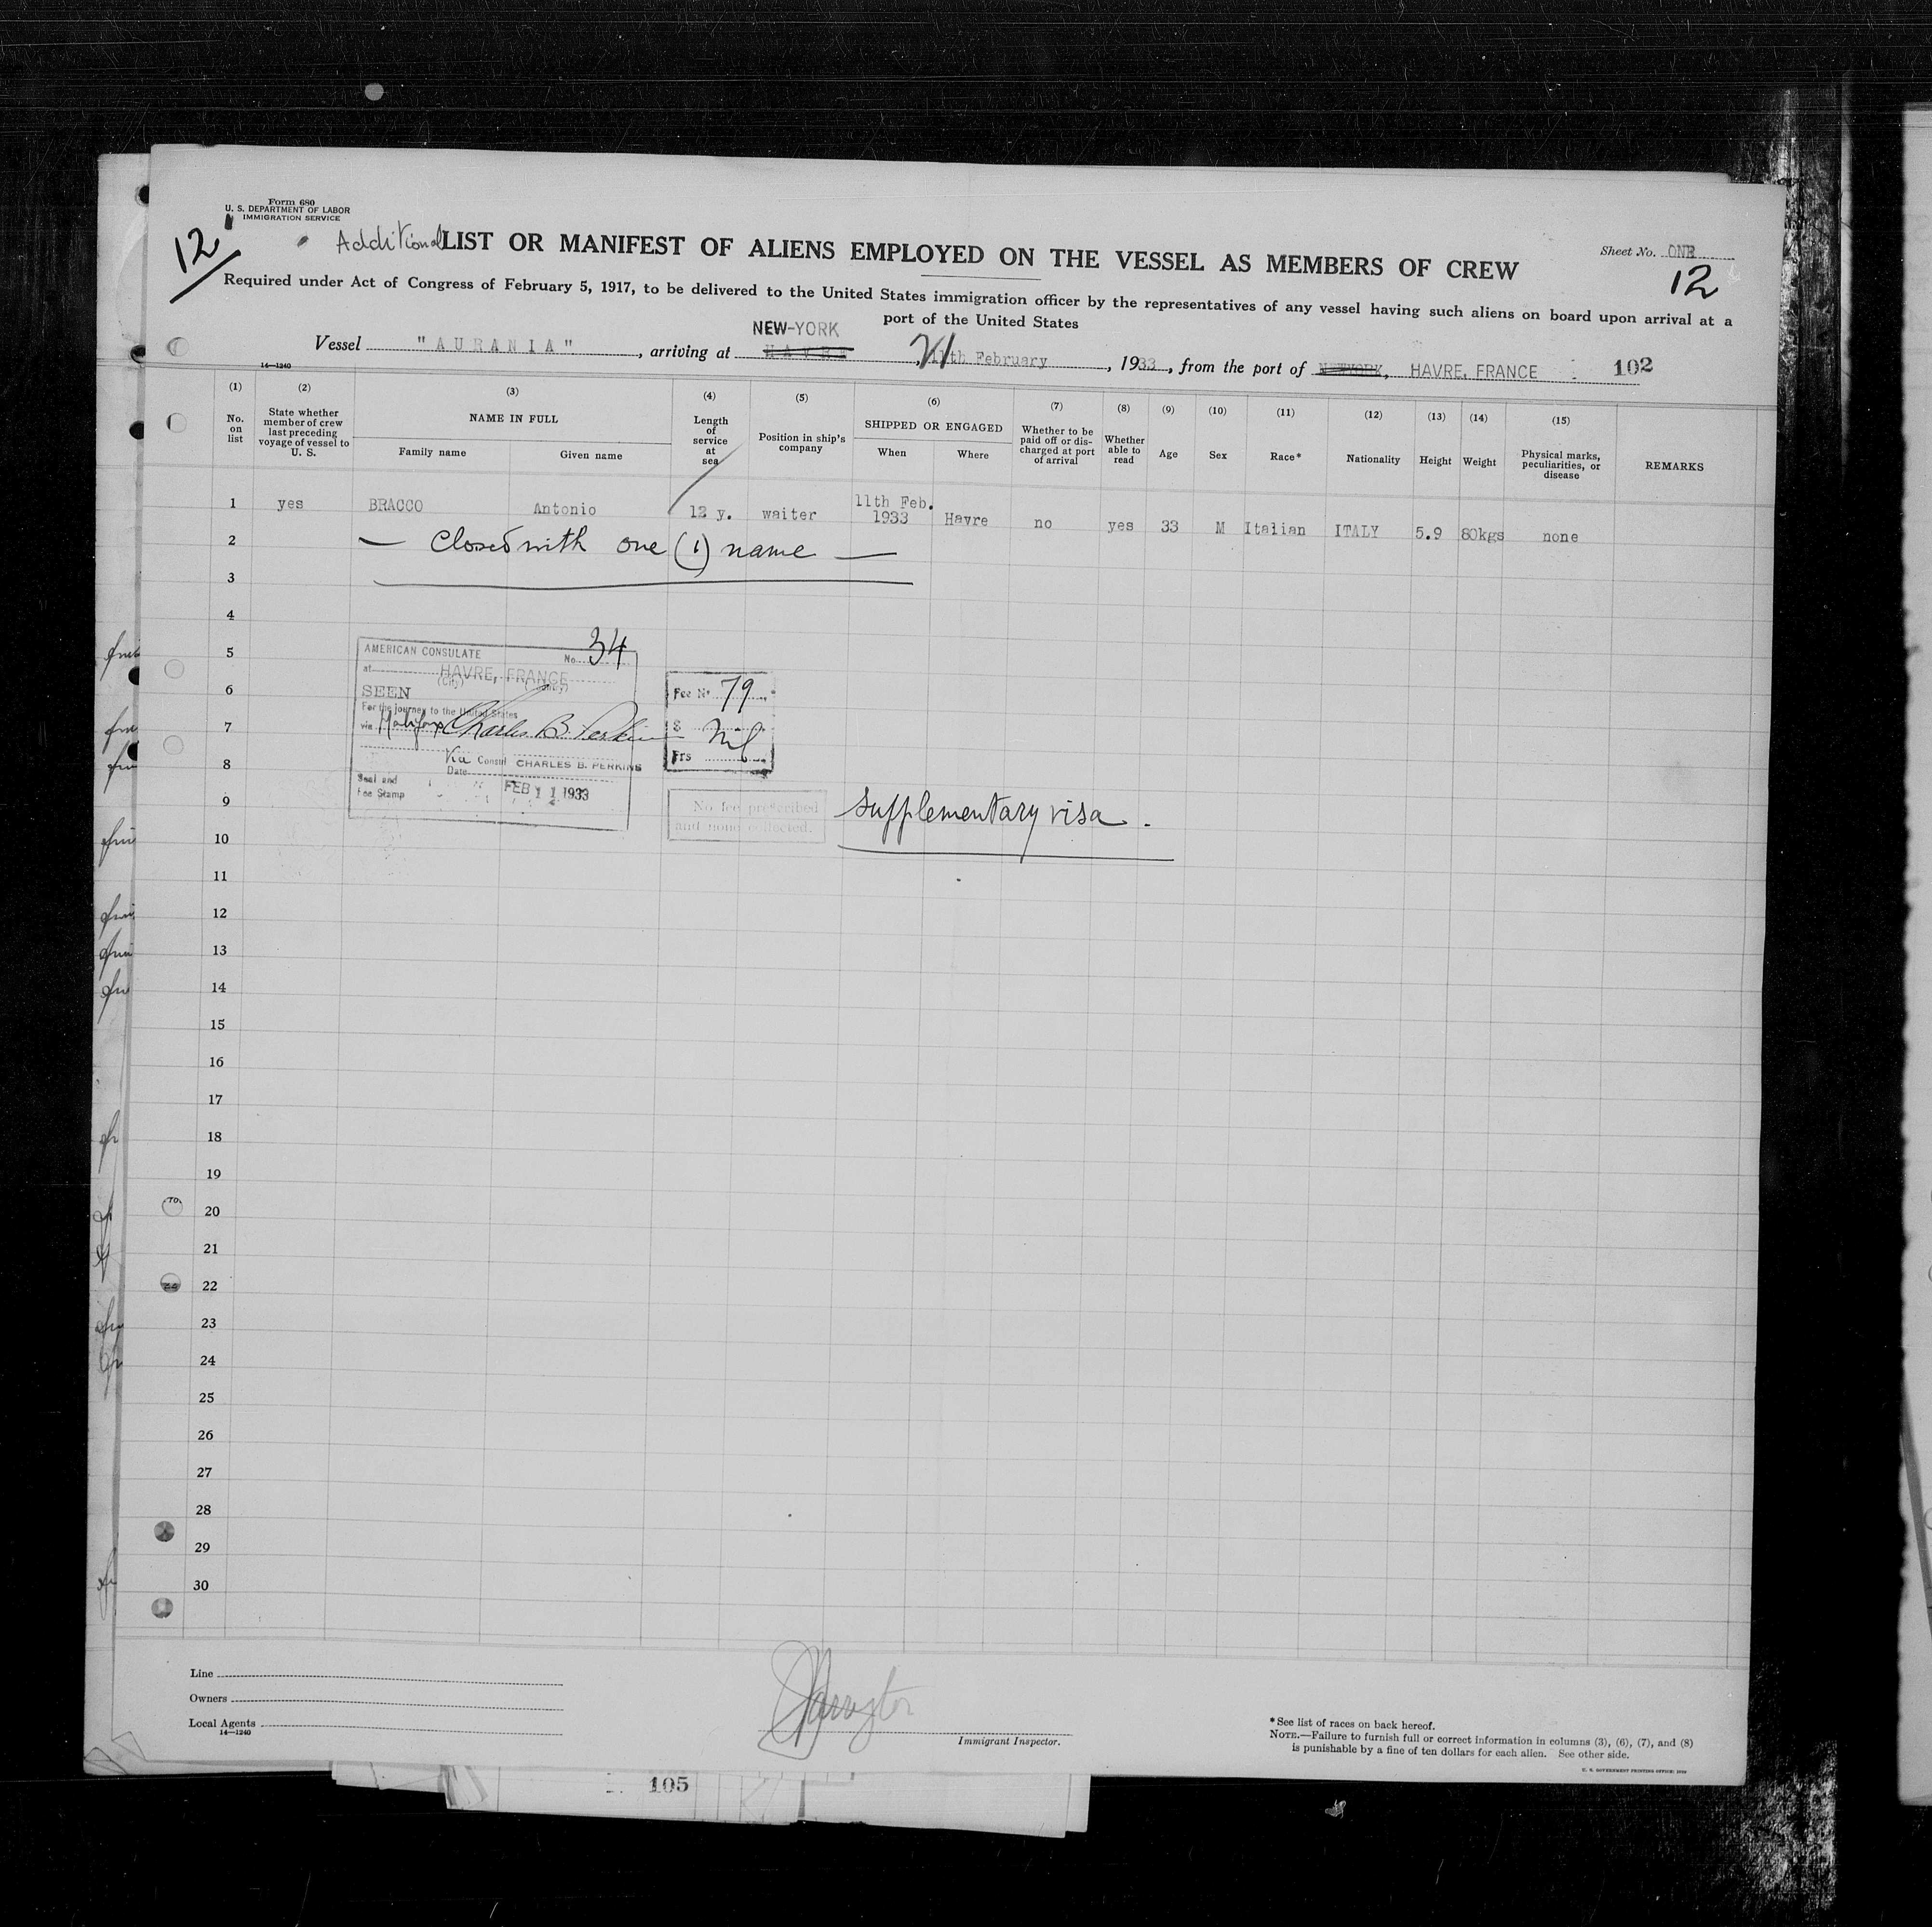 Form 680
U. S. DEPARTMENT OF LABOR
IMMIGRATION SERVICE
12
Additional LIST OR MANIFEST OF ALIENS EMPLOYED ON THE VESSEL AS MEMBERS OF CREW
Sheet No. ONE
12
Required under Act of Congress of February 5, 1917, to be delivered to the United States immigration officer by the representatives of any vessel having such aliens on board upon arrival at a
port of the United States
NEW-YORK
Vessel "AURANIA", arriving at HAVRE, 21 11th February, 1933, from the port of NEWYORK, HAVRE, FRANCE 102
14—1240
(1) (2) (3) (4) (5) (6) (7) (8) (9) (10) (11) (12) (13) (14) (15)
No. on list
State whether member of crew last preceding voyage of vessel to U. S.
NAME IN FULL
Family name Given name
Length of service at sea
Position in ship's company
SHIPPED OR ENGAGED
When Where
Whether to be paid off or discharged at port of arrival
Whether able to read
Age Sex Race* Nationality Height Weight
Physical marks, peculiarities, or disease
REMARKS
1 yes BRACCO Antonio 12 y. waiter 11th Feb. 1933 Havre no yes 33 M Italian ITALY 5.9 80kgs none
2 — Closed with one (1) name —
3
4
5
6
7
8
9
10
11
12
13
14
15
16
17
18
19
20
21
22
23
24
25
26
27
28
29
30
AMERICAN CONSULATE No. 34
at HAVRE, FRANCE
(City) (Country)
SEEN
For the journey to the United States
via Halifax Charles B. Perkins
Vice Consul CHARLES B. PERKINS
Date FEB 11 1933
Seal and
Fee Stamp
Fee No 79
$ Nil
Frs
No fee prescribed
and none collected.
supplementary visa.
Line
Owners
Local Agents
14—1240
Immigrant Inspector.
*See list of races on back hereof.
NOTE.—Failure to furnish full or correct information in columns (3), (6), (7), and (8)
is punishable by a fine of ten dollars for each alien. See other side.
105